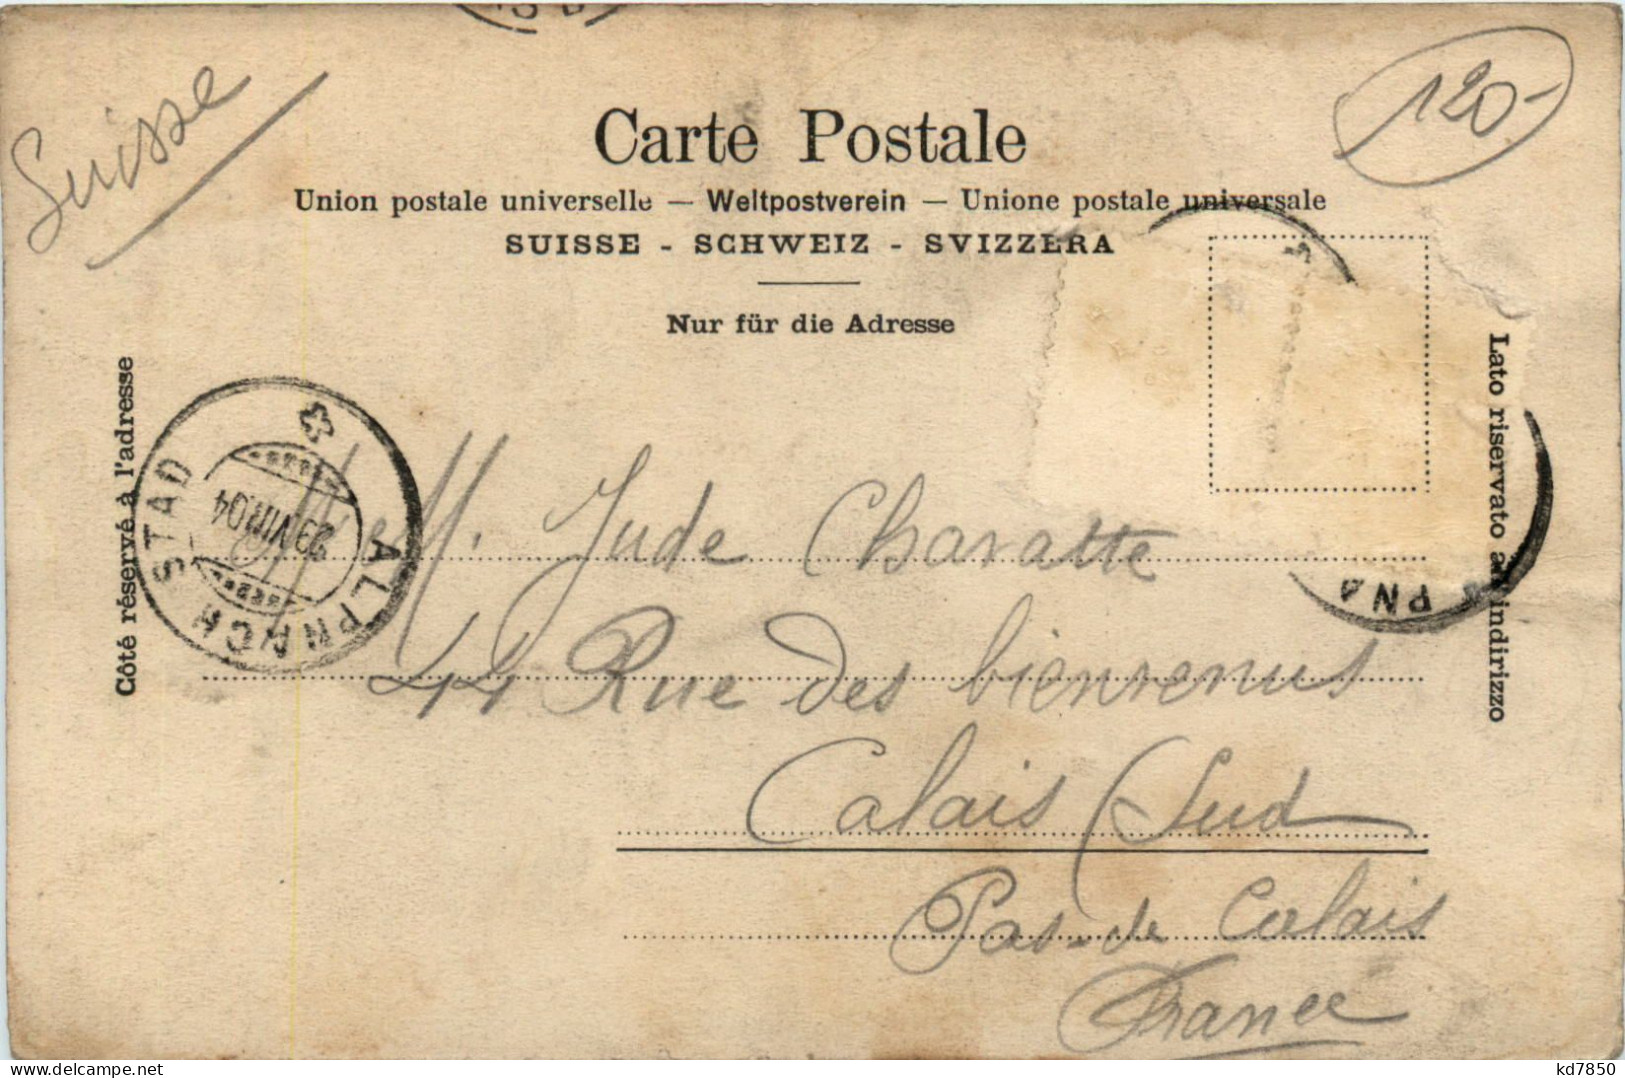 Suisse
120-
Carte Postale
Union postale universelle — Weltpostverein — Unione postale universale
SUISSE - SCHWEIZ - SVIZZERA
Nur für die Adresse
Côté réservé à l'adresse
Lato riservato all'indirizzo
ALPNACH STAD
23.VIII.04
ALPNA
M. Jude Charatte
44 Rue des bienvenus
Calais (Sud
Pas-de Calais
France
delcampe.net
kd7850